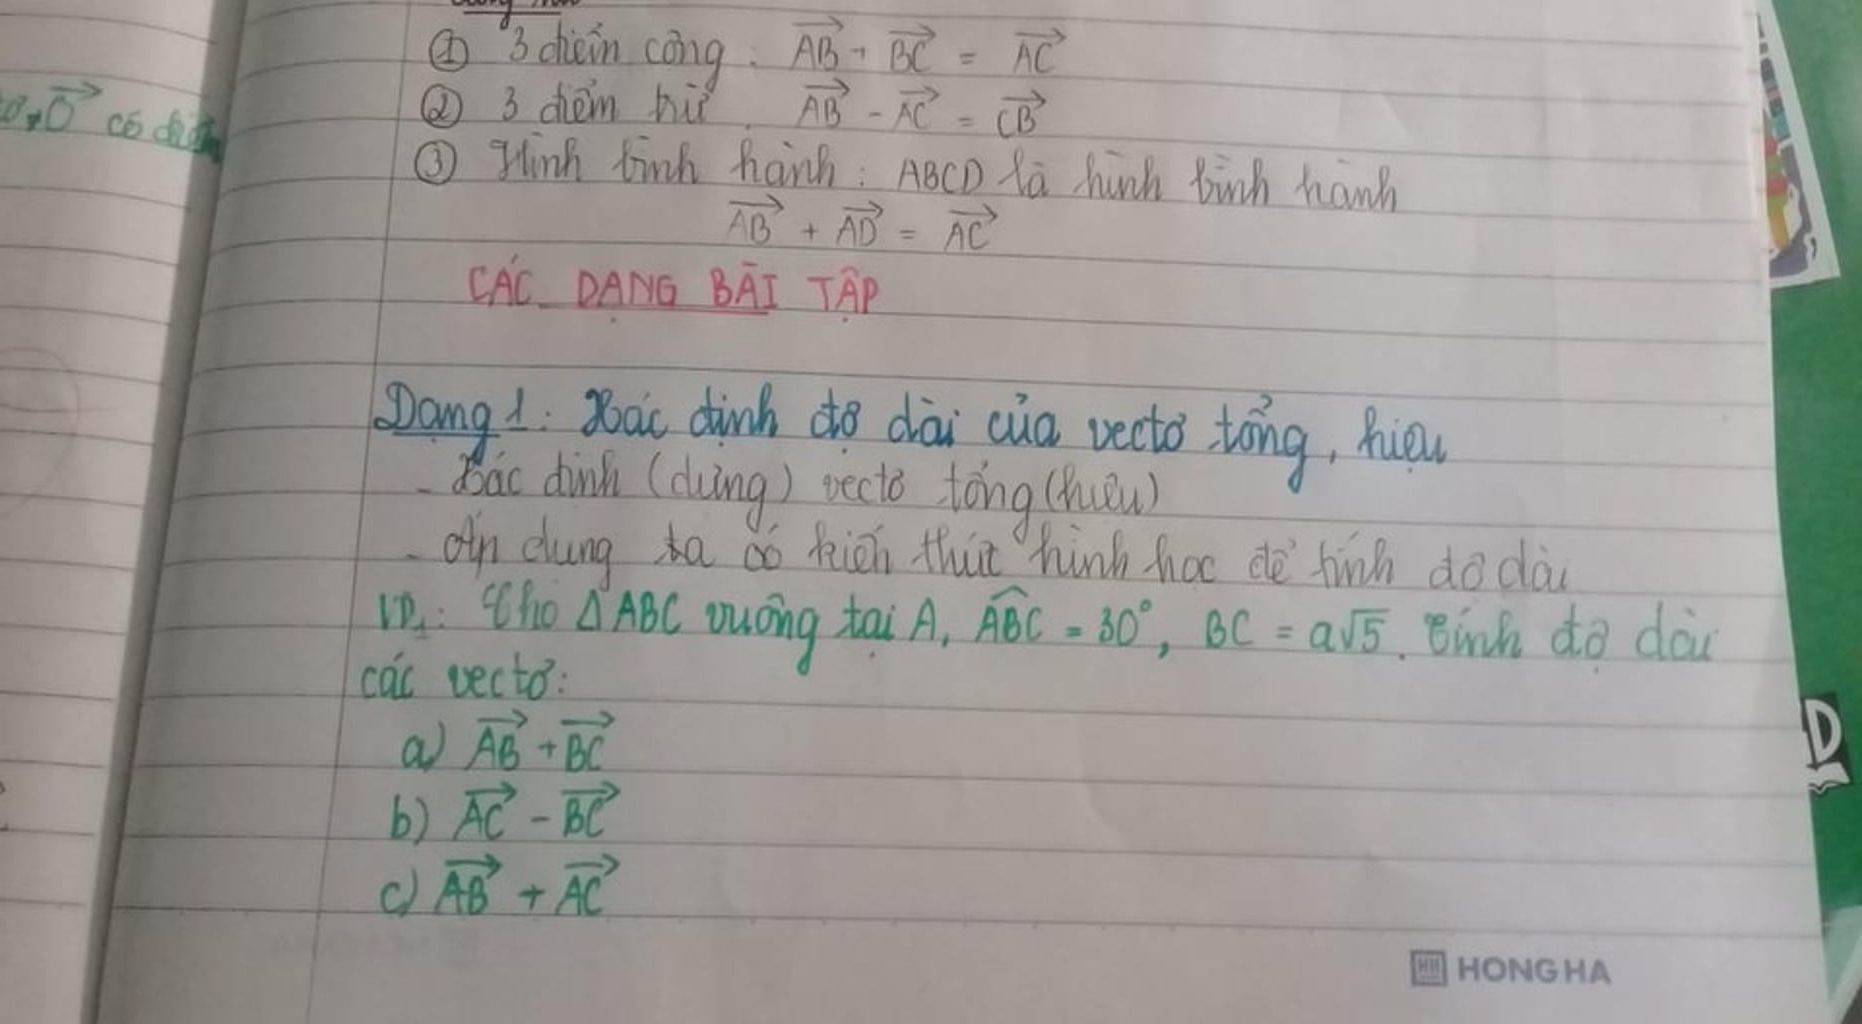 ① 3 điểm cộng : AB + BC = AC
② 3 điểm trừ . AB - AC = CB
③ Hình bình hành : ABCD là hình bình hành
AB + AD = AC
CÁC DẠNG BÀI TẬP
có điểm
Dạng 1 : Xác định độ dài của vectơ tổng, hiệu
- Xác định (dựng) vectơ tổng (hiệu)
- Áp dụng ta có kiến thức hình học để tính độ dài
VD1 : Cho Δ ABC vuông tại A, ABC = 30°, BC = a√5 . Tính độ dài
các vectơ :
a) AB + BC
b) AC - BC
c) AB + AC
D
HH HONG HA